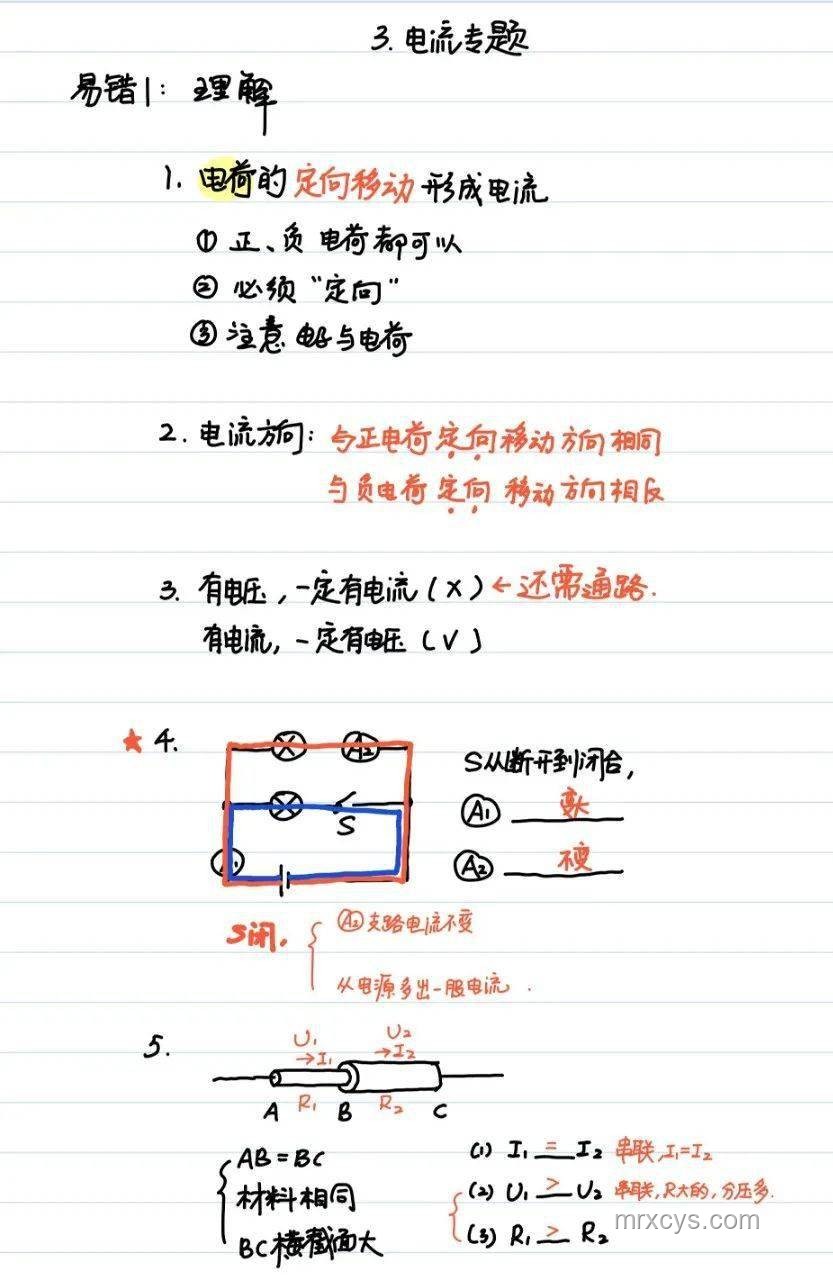 3. 电流专题
易错1: 理解
1. 电荷的定向移动形成电流
① 正、负电荷都可以
② 必须“定向”
③ 注意 电子与电荷
2. 电流方向: 与正电荷定向移动方向相同
与负电荷定向移动方向相反
3. 有电压,一定有电流(X)←还需通路.
有电流,一定有电压(V)
★ 4.
A₂
S
A₁
S从断开到闭合,
A₁ 变大
A₂ 不变
S闭, A₂支路电流不变
从电源多出一股电流.
5.
U₁ U₂
→I₁ →I₂
A R₁ B R₂ C
AB=BC
材料相同
BC横截面大
(1) I₁ = I₂ 串联,I₁=I₂
(2) U₁ > U₂ 串联,R大的,分压多.
(3) R₁ > R₂
mrxcys.com